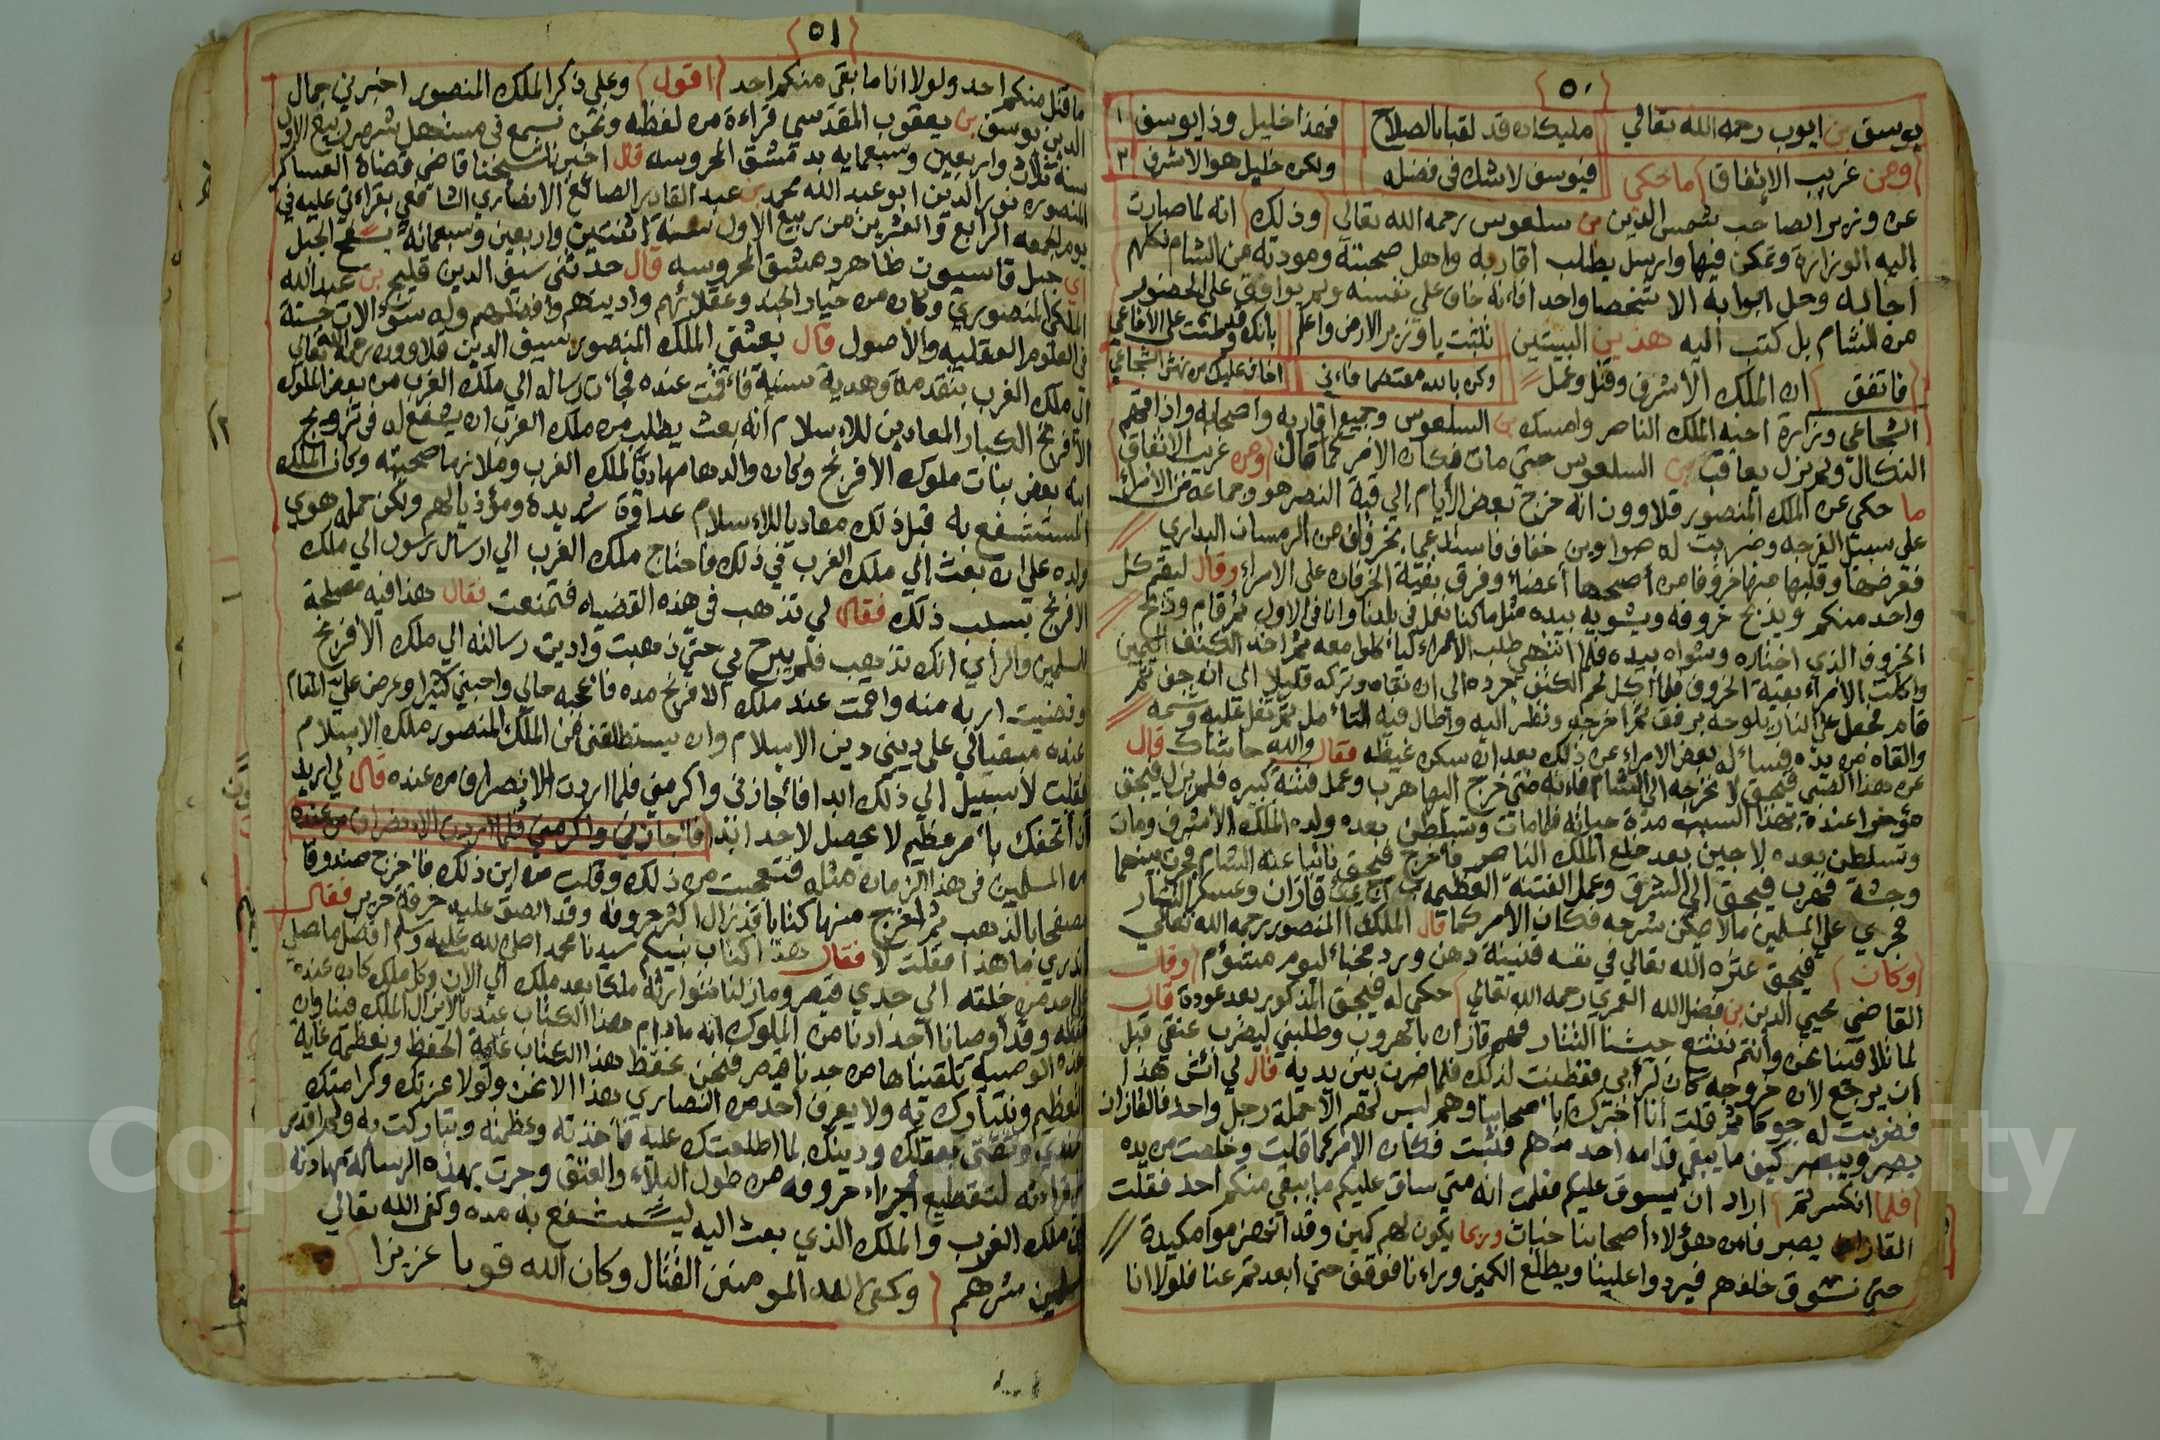 ٥٠
يوسف بن ايوب رحمه الله تعالي مليكان قد لقبا بالصلاح فهذا خليل وذا يوسف ١
ومن غريب الاتفاق ما حكي فيوسف لا شك في فضله ولكن خليل هو الاشرف ٢
عن وزير الصاحب شمس الدين بن سلعوس رحمه الله تعالي وذلك انه لما صارت
اليه الوزارة وتمكن فيها وارسل يطلب اقاربه واهل صحبته ومودته من الشام فكلهم
اجابه وحل ابوابه الا شخصا واحدا فانه خاف علي نفسه ولم يوافق علي الحضور
من الشام بل كتب اليه هذين البيتين تثبت يا وزير الارض واعلم بانك قد وطئت علي الافاعي
فاتفق ان الملك الاشرف وقتل وعمل وكن بالله معتصما فاني اخاف عليك من نهش الشجاعي
الشجاعي وزارة اخيه الملك الناصر وامسك بن السلعوس وجميع اقاربه واصحابه واذاقهم
النكال ولم يزل يعاقب بن السلعوس حتي مات فكان الامر كما قال ومن غريب الاتفاق
ما حكي عن الملك المنصور قلاوون انه خرج بعض الايام الي قبة النصر هو وجماعه من الامراء
علي سبيل الفرجه وضربت له صواوين خفاف فاستدعي بخرفان من الرمسان البداري
فعرضها وقلبها منها خروفا من أصحها أعضاء وفرق بقية الخرفان علي الامراء وقال ليقم كل
واحد منكم ويذبح خروفه ويشويه بيده مثل ما كنا نعمل في بلدنا وانا في الاول ثم قام وذبح
الخروف الذي اختاره وشواه بيده فلما انتهي طلب الامراء ليأكلوا معه ثم اخذ الكتف اليمين
واكلت الامراء بقية الخروف فلما أكل لحم الكتف جرده الي ان نقاه وتركه قليلا الي انه جف ثم
قام فجعل علي النار يلوحه برفق ثم اخرجه ونظر اليه واطال فيه التأمل ثم تفل عليه وشمه
والقاه من يده فسأله بعض الامراء عن ذلك بعد ان سكن غيظه فقال والله حاشاك قال
عن هذا الصبي قبجق لا تخرجه الي الشام فانه متي خرج اليها هرب وعمل فتنة كبيره فلم يزل قبجق
مؤخرا عنده بهذا السبب مدة حياته فلما مات وتسلطن بعده ولده الملك الاشرف ومات
وتسلطن بعده لاجين بعد خلع الملك الناصر فأخرج قبجق نائبا عنه الشام فجرت بينهما
وحشة فهرب قبجق الي الشرق وعمل الفتنة العظيمه قازان وعسكر التتار
فجري علي المسلمين ما لا يمكن شرحه فكان الامر كما قال الملك المنصور رحمه الله تعالي
وكان قبجق عثره الله تعالي في نفسه فتيتة دهن وبرد مخباء ليوم مشؤم وقال
القاضي محيي الدين بن فضل الله العمري رحمه الله تعالي حكي له قبجق المذكور بعد عودة قال
لما تلاقينا نحن وانتم نفتنع جيشنا التتار فهم قازان بالهروب وطلبني ليضرب عنقي قبل
ان يرجع لان خروجه كان برأيي ففطنت لذلك فلما صرت بين يديه قال لي أئش هذا
فضربت له جوكا ثم قلت انا اخبرك بأصحابنا وهم ليس لهم الا حملة رجل واحد فالقازان
يصبر ويبصر كيف ما يبقي قدامه أحد منهم فثبت فكان الامر كما قلت وخلصت من يده
فلما انكسرتم اراد ان يسوق عليكم فقلت انه متي ساق عليكم ما يبقي منكم احد فقلت
القازان يصبر فان هؤلاء اصحابنا خباث وربما يكون لهم كمين وقد انهزموا مكيدة
حتي نسوق خلفهم فيردوا علينا ويطلع الكمين وراءنا فوقف حتي أبعدتم عنا فلولا انا
٥١
ما قتل منكم احد ولولا انا ما بقي منكم احد اقول وعلي ذكر الملك المنصور اخبرني جمال
الدين يوسف بن يعقوب المقدسي قراءة من لفظه ونحن نسمع في مستهل شهر ربيع الاول
سنة ثلاث واربعين وسبعمايه بدمشق المحروسه قال اخبرنا شيخنا قاضي قضاة العساكر
المنصوره نور الدين ابو عبد الله محمد بن عبد القادر الصائغ الانصاري الشافعي بقراءتي عليه في
يوم الجمعه الرابع والعشرين من ربيع الاول سنة اثنتين واربعين وسبعمائة بسفح الجبل
اي جبل قاسيون ظاهر دمشق المحروسه قال حدثني سيف الدين قليج بن عبد الله
الملكي المنصوري وكان من خيار الجند وعقلائهم وادينهم وافضلهم وله سؤالات حسنة
في العلوم العقليه والاصول قال بعثني الملك المنصور سيف الدين قلاوون رحمه الله تعالي
الي ملك الغرب بتقدمة وهدية سنية فأقمت عنده فجاءت رساله الي ملك الغرب من بعض الملوك
الافرنج الكبار المعادين للاسلام انه بعث يطلب من ملك الغرب ان يشفع له في تزويج
ابنه بعض بنات ملوك الافرنج وكان والدها مهاديا لملك الغرب وملازما صحبته وكان الملك
المستشفع به قبل ذلك معاديا للاسلام عداوة شديدة ومؤذيا لهم ولكن حمله هوي
ولده علي ان بعث الي ملك الغرب في ذلك فاحتاج ملك الغرب الي ارسال رسول الي ملك
الافرنج بسبب ذلك فقال لي تذهب في هذه القضيه فتمنعت فقال هذا فيه مصلحة
للمسلمين والرأي انك تذهب فلم يبرح بي حتي ذهبت واديت رسالته الي ملك الافرنج
وقضيت اربه منه واقمت عند ملك الافرنج مده فأعجبه حالي واحبني كثيرا وعرض علي المقام
عنده مبقيا لي علي ديني دين الاسلام وان يستطلقني من الملك المنصور ملك الاسلام
فقلت لا سبيل الي ذلك ابدا فأجازني واكرمني فلما اردت الانصراف من عنده قال لي اريد
أن أتحفك بأمر عظيم لا يحصل لاحد ابدا فأجازني واكرمني فلما اردت الانصراف من عنده
من المسلمين في هذا الزمان مثله فتعجبت من ذلك وقلت من اين ذلك فأخرج صندوقا
مصفحا بالذهب ثم اخرج منها كتابا قد زال اكثر حروفه وقد الصق عليه خرقة حرير فقال
اتدري ما هذا فقلت لا فقال هذا كتاب نبيكم سيدنا محمد صلي الله عليه وسلم افضل ما صلي
علي احد من خلقه الي جدي قيصر وما زلنا نتوارثه ملكا بعد ملك الي الان وكل ملك كان عنده
قبله وقد أوصانا اجدادنا من الملوك انه ما دام هذا الكتاب عندنا لا يزال الملك فينا وان
هذه الوصيه تلقيناها من جدنا قيصر فنحن نحفظ هذا الكتاب غاية الحفظ ونعظمه غاية
التعظيم ونتبارك به ولا يعرف احد من النصاري هذا الا نحن ولولا عزتك وكرامتك
عندي وثقتي بعقلك ودينك لما اطلعتك عليه فأخذته وعظمته وتباركت به ولم اقدر
قراءته لتقطيع أجزاء حروفه من طول البلاء والعتق وجرت بهذه الرساله مهادنة
بين ملك الغرب والملك الذي بعث اليه ليستشفع به مده وكفي الله تعالي
المسلمين شرهم وكفي الله المومنين القتال وكان الله قويا عزيزا
Copyright © King Saud University